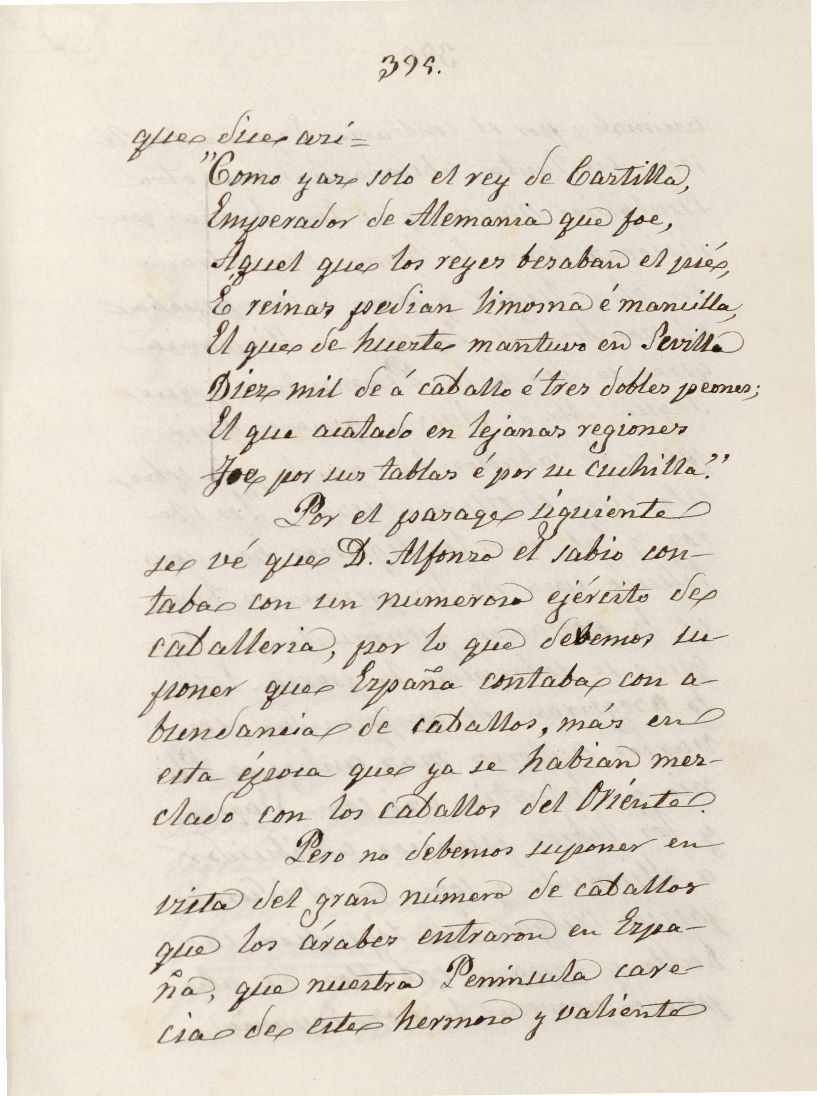 395.
que dice asi=
"Como yaz solo el rey de Castilla,
Emperador de Alemania que foe,
Aquel que los reyes besaban el pié,
E reinas pedian limosna é mancilla,
El que de hueste mantuvo en Sevilla
Diez mil de á caballo é tres dobles peones;
El que acatado en lejanas regiones
Foe por sus tablas é por su cuchilla."
Por el parage siguiente
se vé que D. Alfonso el sabio con-
taba con un numeroso ejército de
caballeria, por lo que debemos su-
poner que España contaba con a-
bundancia de caballos, más en
esta época que ya se habian mez-
clado con los caballos del Oriénte.
Pero no debemos suponer en
vista del gran número de caballos
que los árabes entraron en Espa-
ña, que nuestra Peninsula care-
cia de este hermoso y valiente